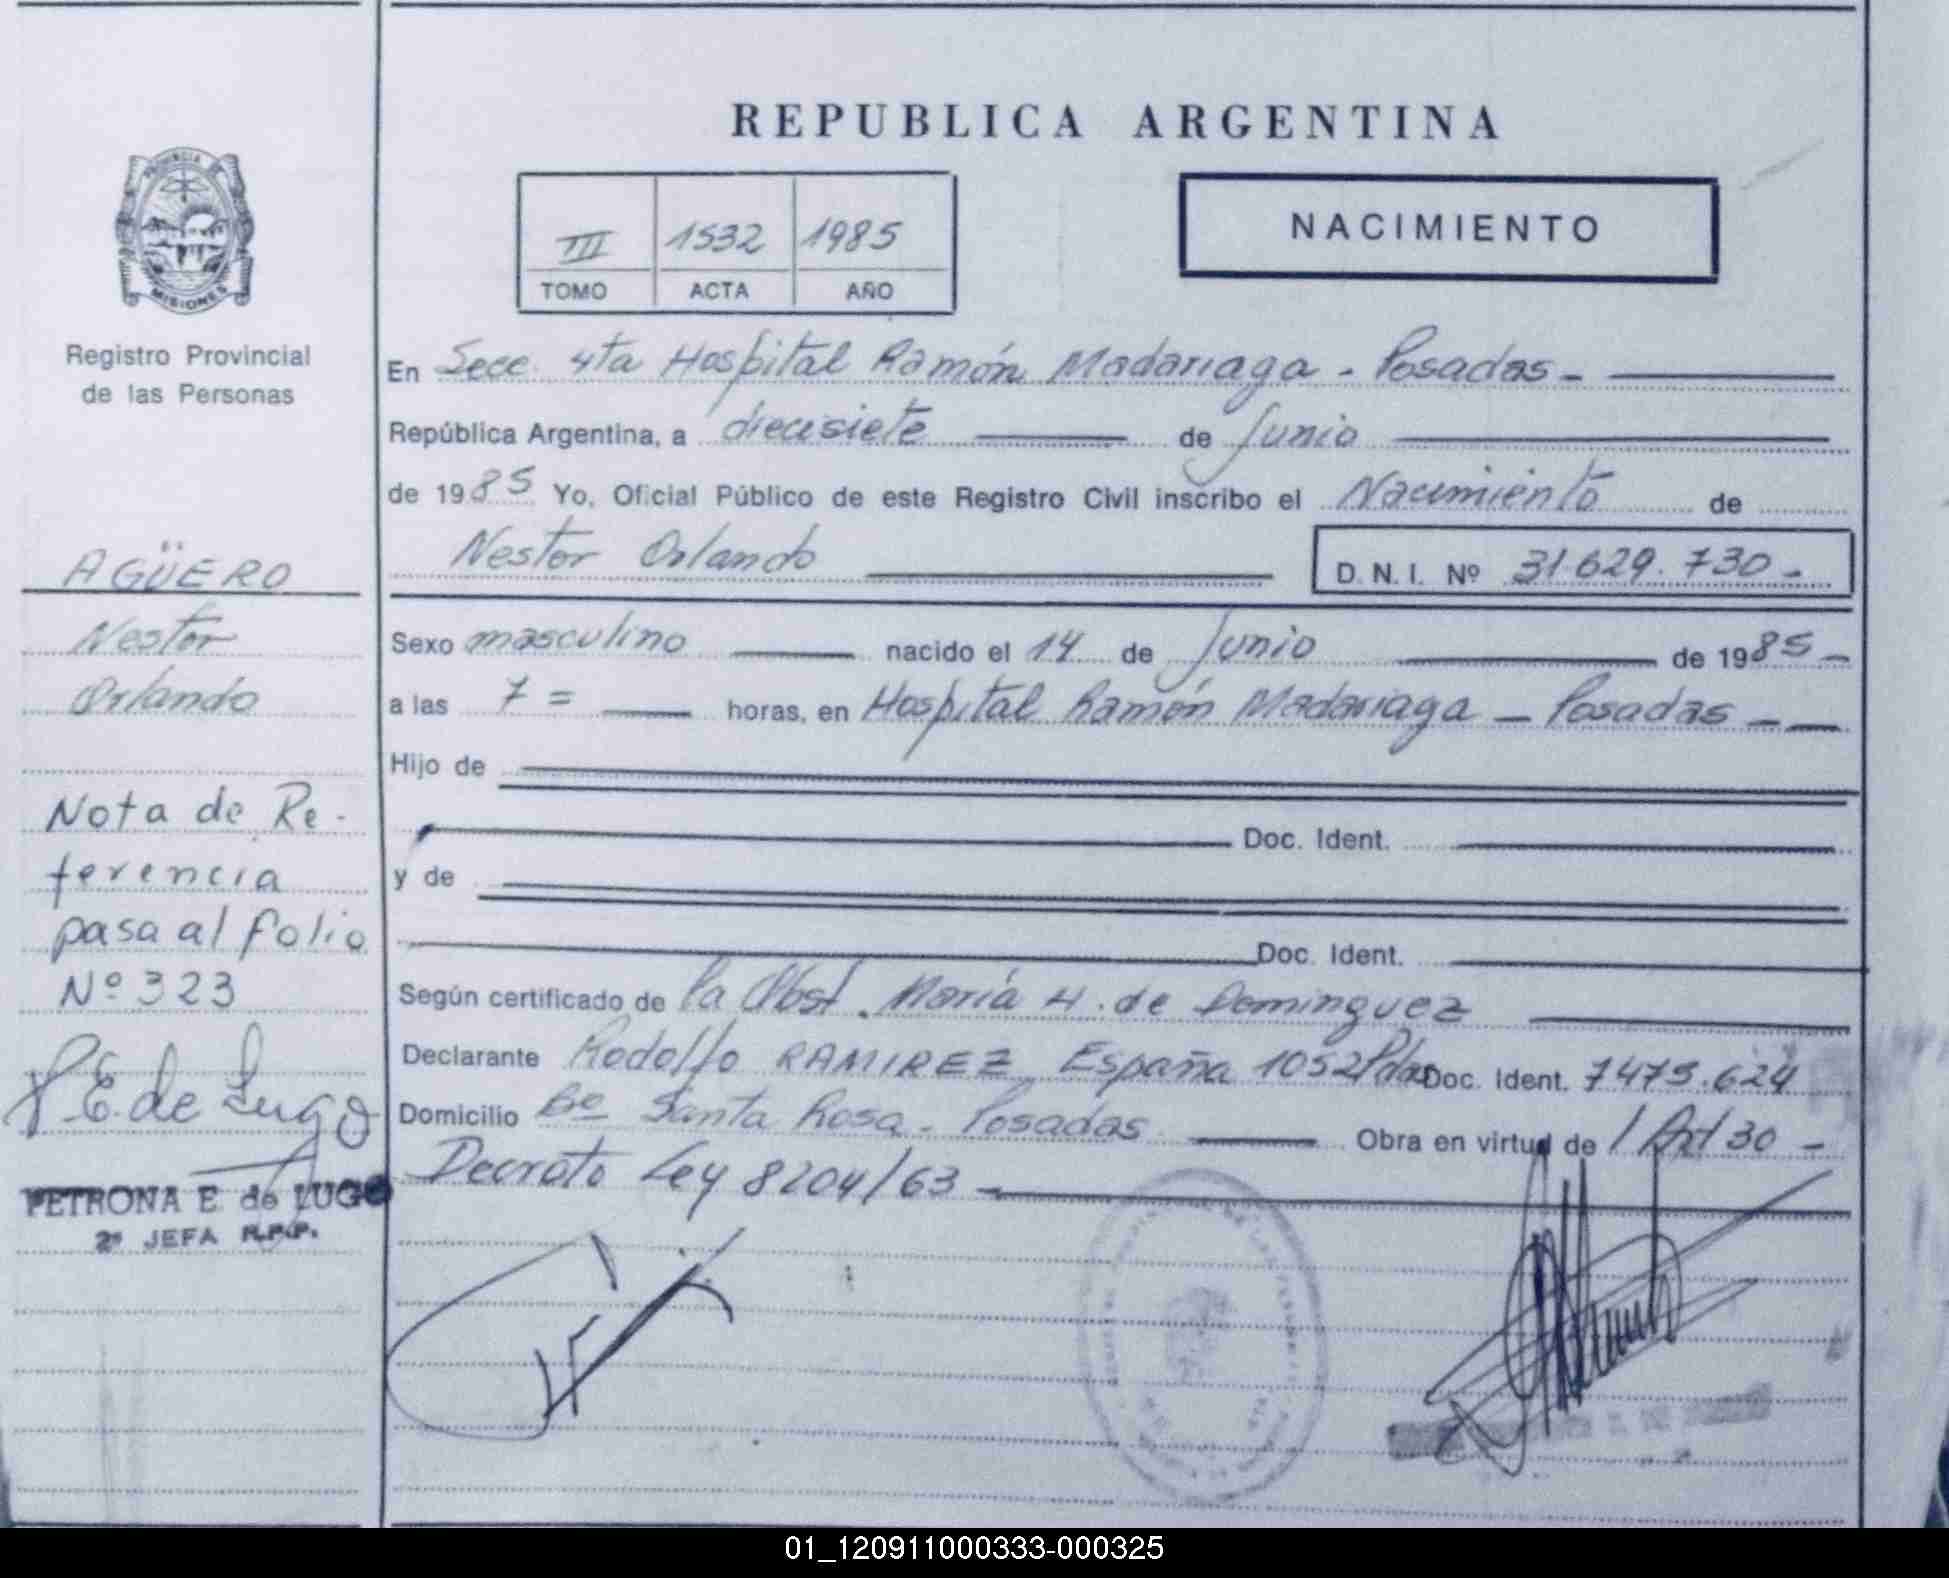 REPUBLICA ARGENTINA
PROVINCIA DE
MISIONES
Registro Provincial
de las Personas
III 1532 1985
TOMO ACTA AÑO
NACIMIENTO
En Secc. 4ta Hospital Ramón Madariaga - Posadas -
República Argentina, a diecisiete de Junio
de 1985 Yo, Oficial Público de este Registro Civil inscribo el Nacimiento de
Nestor Orlando D.N.I. Nº 31.629.730 -
AGÜERO
Nestor
Orlando
Sexo masculino nacido el 14 de Junio de 1985 -
a las 7 = horas, en Hospital Ramón Madariaga - Posadas -
Hijo de
Doc. Ident.
y de
Doc. Ident.
Nota de Re-
ferencia
pasa al folio
Nº 323
P.E. de Lugo
PETRONA E. de LUGO
2ª JEFA R.P.P.
Según certificado de la Obst. María H. de Dominguez
Declarante Rodolfo RAMIREZ España 1052 Pdas Doc. Ident. 7.475.624
Domicilio Bº Santa Rosa - Posadas Obra en virtud de / Art 30 -
Decreto Ley 8204/63 -
01_120911000333-000325